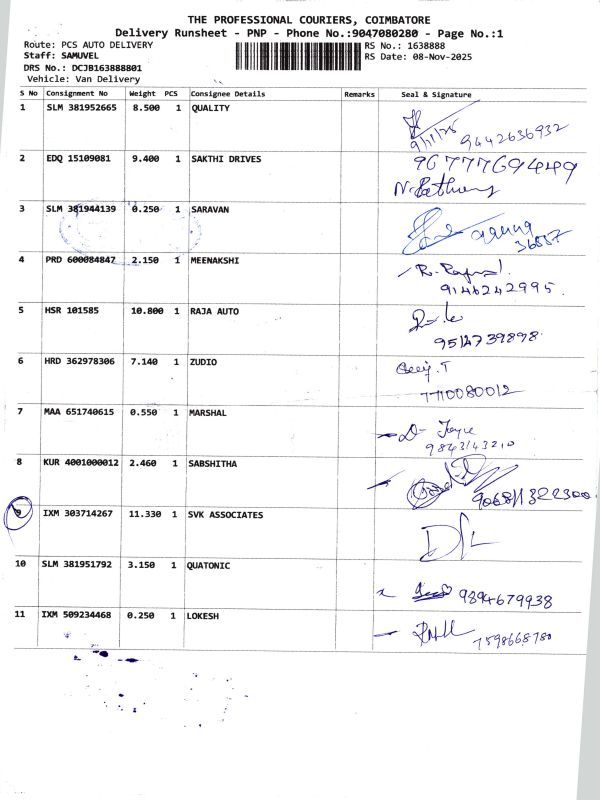 THE PROFESSIONAL COURIERS, COIMBATORE
Delivery Runsheet - PNP - Phone No.:9047080280 - Page No.:1
Route: PCS AUTO DELIVERY
RS No.: 1638888
Staff: SAMUVEL
RS Date: 08-Nov-2025
DRS No.: DCJB163888801
Vehicle: Van Delivery
S No Consignment No Weight PCS Consignee Details Remarks Seal & Signature
1 SLM 381952665 8.500 1 QUALITY
9/11/25 9442636932
2 EDQ 15109081 9.400 1 SAKTHI DRIVES
9677769449
3 SLM 381944139 0.250 1 SARAVAN
36887
4 PRD 600084847 2.150 1 MEENAKSHI
9146242995.
5 HSR 101585 10.800 1 RAJA AUTO
9514739898
6 HRD 362978306 7.140 1 ZUDIO
7710080012
7 MAA 651740615 0.550 1 MARSHAL
9843143210
8 KUR 4001000012 2.460 1 SABSHITHA
9 IXM 303714267 11.330 1 SVK ASSOCIATES
10 SLM 381951792 3.150 1 QUATONIC
9894679938
11 IXM 509234468 0.250 1 LOKESH
7598668780